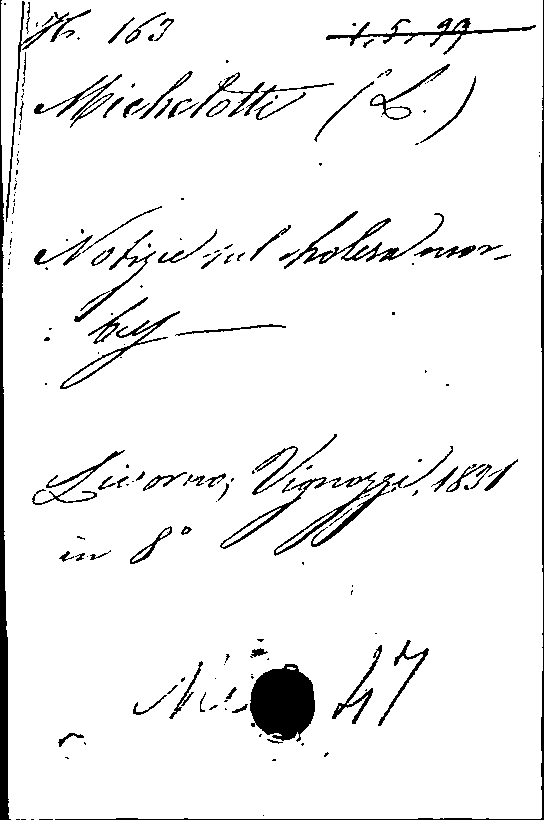 H. 163 1,5,99
Michelotti (L.)
Notizie sul cholera mor-
bus
Livorno, Vignozzi, 1831
in 8°
47